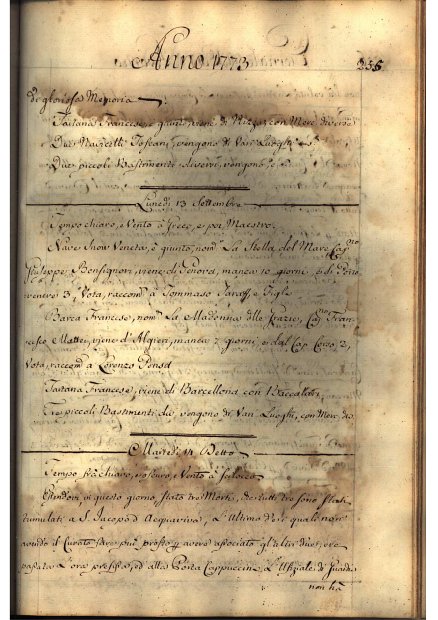 Anno 1773
256
de gloriosa Memoria
Tartana Francese, è giunta, viene di Nizza con Merc. diverse
Due Navicelli Toscani, vengono di Van Luoghi
Due piccoli Bastimenti diversi, vengono
Lunedi 13 Settembre
Tempo chiaro, e Vento à Greco, e poi Maestro.
Nave Snow Veneta, è giunta, nom.ta La Stella del Mare Cap.no
Giuseppe Bonsignori, viene di Genova, manca 10 giorni, e di Porto
venere 3 Vota, raccom.ta à Tommaso Figli
Barca Francese, nom.ta La Madonna delle Grazie, Cap.no Fran-
cesco Mattei, viene d'Algieri, manca 7 giorni, e dal Cap Corso 2,
Vota, raccom.ta a Lorenzo
Tartana Francese, viene di Barcellona con Baccalari,
Tre piccoli Bastimenti che vengono di Van Luoghi, con Merc.
Martedi 14 Detto
Tempo frà chiaro, e oscuro, e Vento à Scilocco
Essendovi, in questo giorno, stato tre Morti, che tutti tre sono stati
tumulati a S. Jacopo d'Acquaviva, L'Ultimo de quali non
avendo il Curato fare più presto p avere asociato gl'altri due, ere
pasata L'ora prefissa, ed alla Porta Cappuccini L'Ufiziale di Guardia
non hà